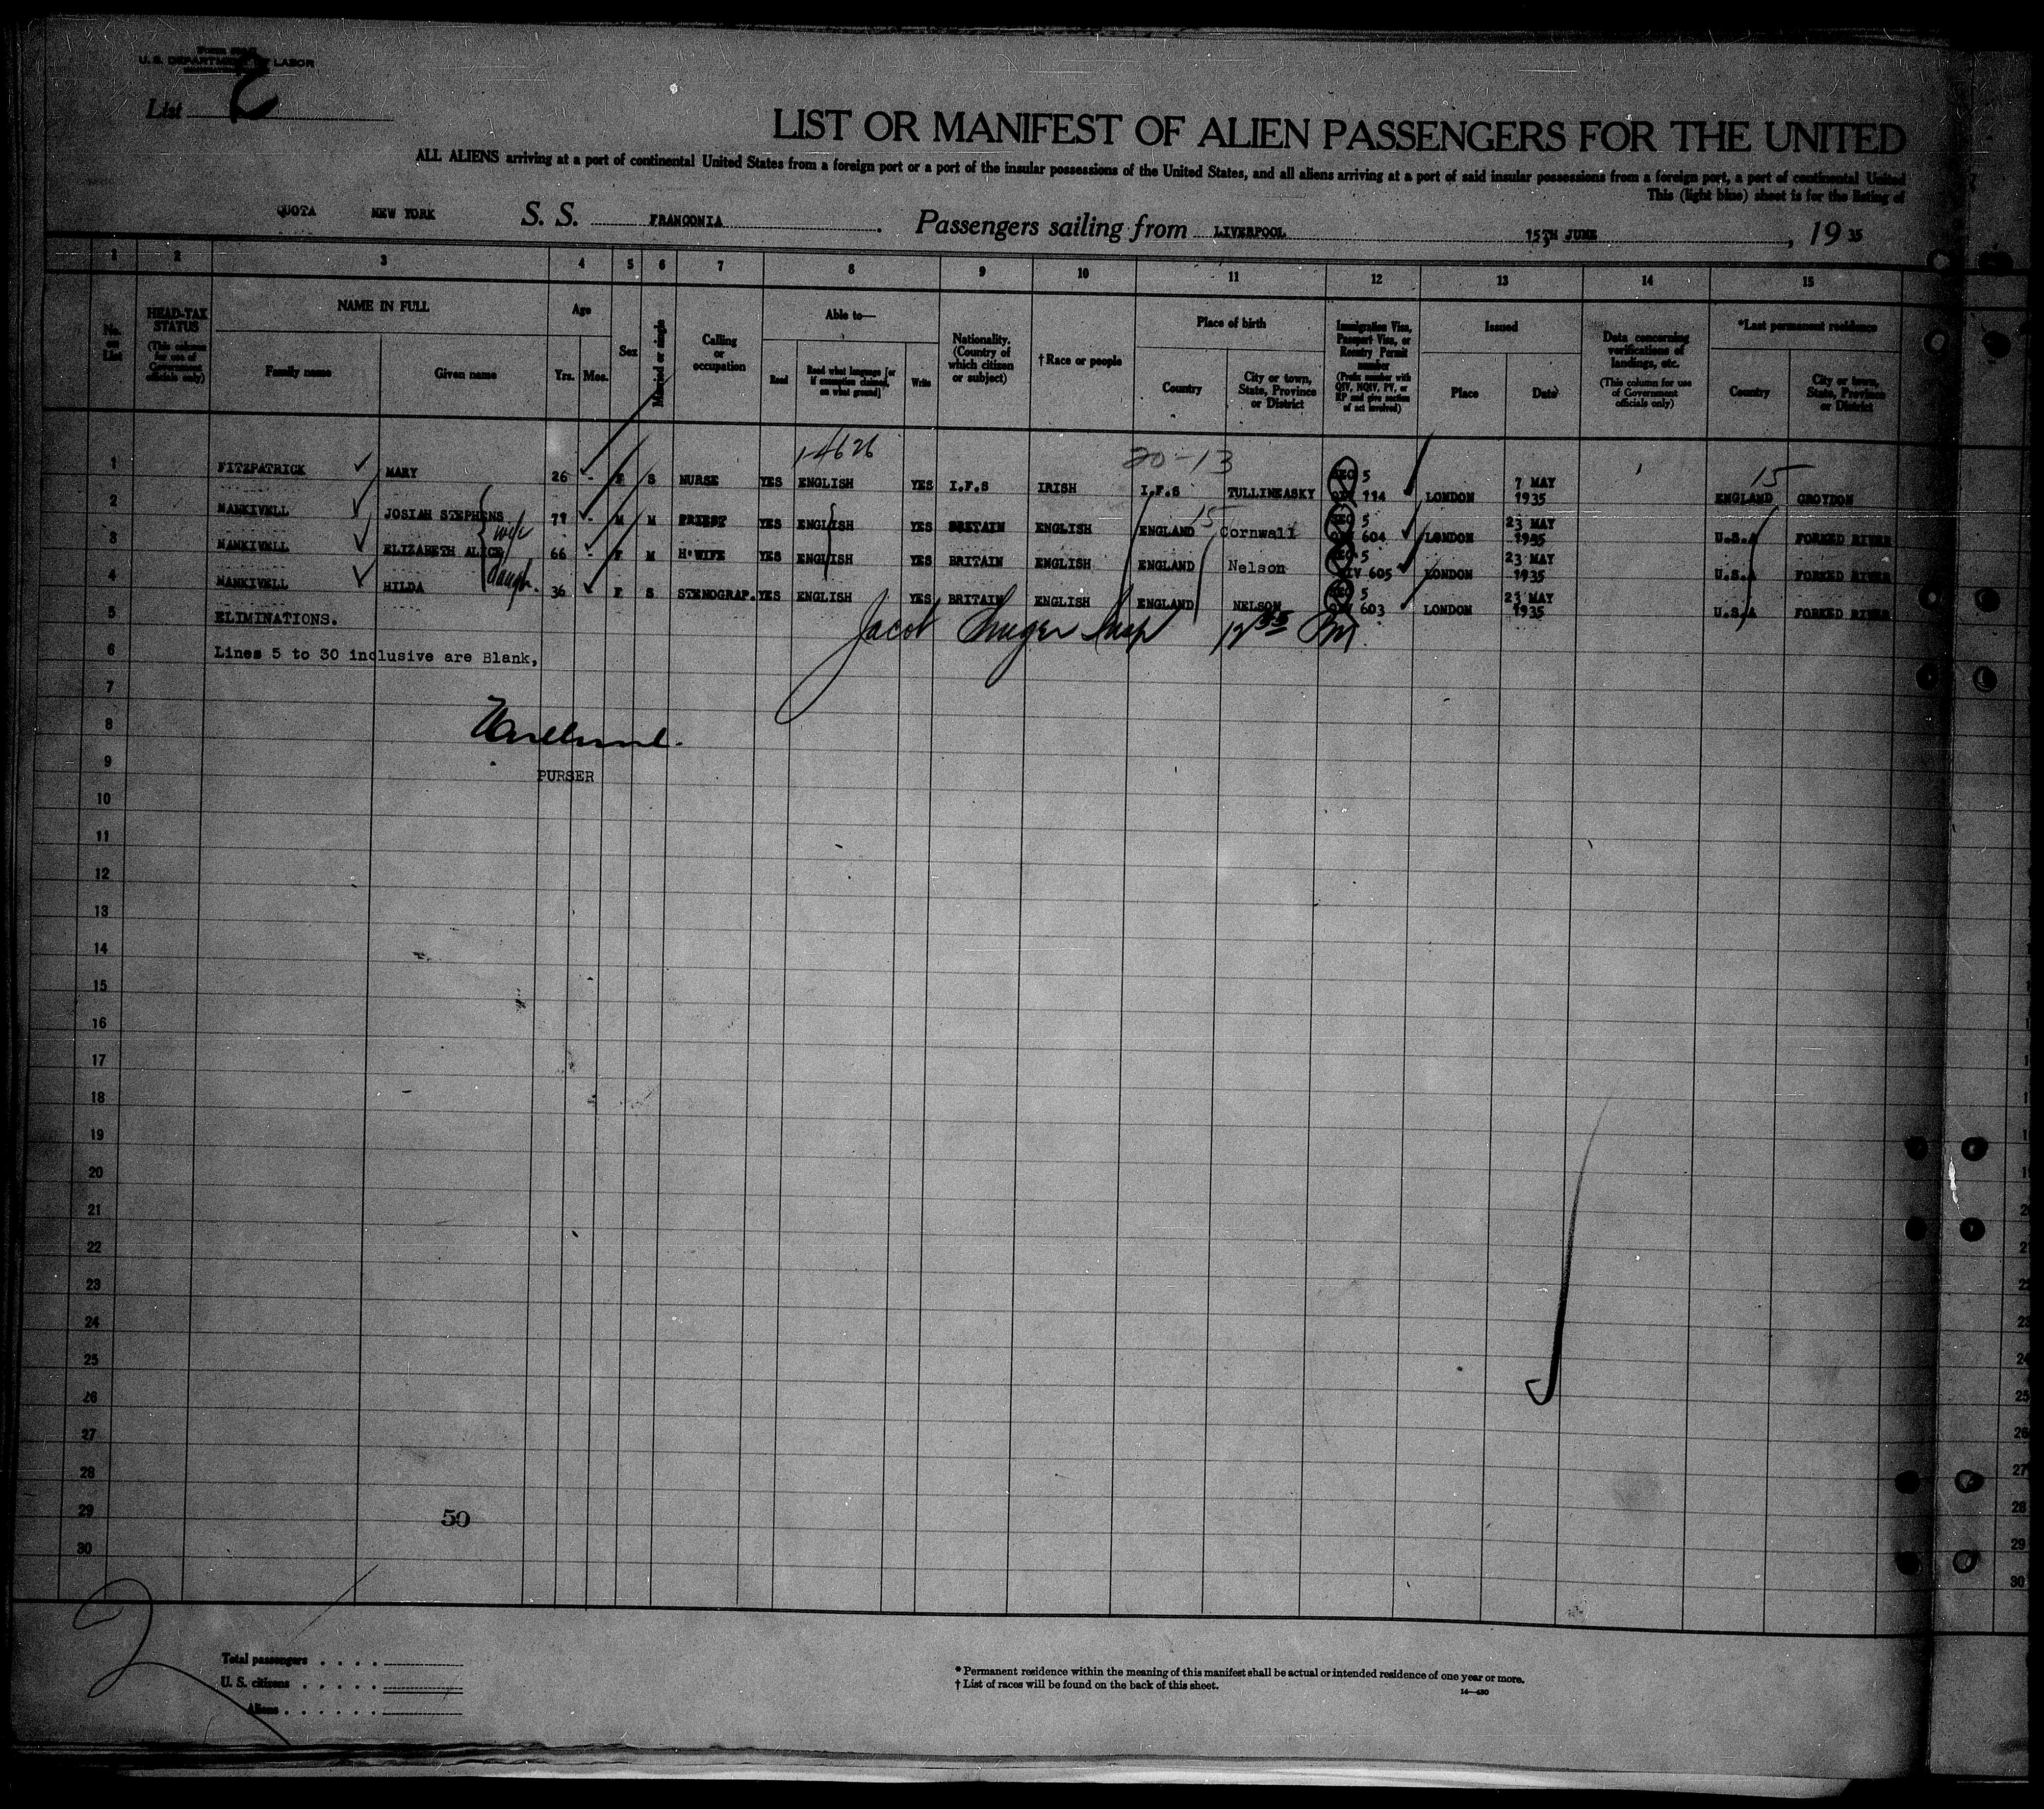 U. S. DEPARTMENT OF LABOR
List 2
LIST OR MANIFEST OF ALIEN PASSENGERS FOR THE UNITED
ALL ALIENS arriving at a port of continental United States from a foreign port or a port of the insular possessions of the United States, and all aliens arriving at a port of said insular possessions from a foreign port, a port of continental United
This (light blue) sheet is for the listing of
QUOTA NEW YORK S. S. FRANCONIA. Passengers sailing from LIVERPOOL 15TH JUNE, 19 35
1 2 3 4 5 6 7 8 9 10 11 12 13 14 15
No. on List
HEAD-TAX STATUS (This column for use of Government officials only)
NAME IN FULL
Family name
Given name
Age
Yrs. Mos.
Sex
Married or single
Calling or occupation
Able to—
Read
Read what language [or if exemption claimed, on what ground]
Write
Nationality. (Country of which citizen or subject)
† Race or people
Place of birth
Country
City or town, State, Province or District
Immigration Visa, Passport Visa, or Reentry Permit number (Prefix number with QIV, NQIV, PV, or RP and give section of act involved)
Issued
Place
Date
Data concerning verifications of landings, etc. (This column for use of Government officials only)
*Last permanent residence
Country
City or town, State, Province or District
1-4626 20-13 15
1 FITZPATRICK MARY 26 - F S NURSE YES ENGLISH YES I.F.S IRISH I.F.S TULLINEASKY 5 114 LONDON 7 MAY 1935 ENGLAND CROYDON
2 NANKIVELL JOSIAH STEPHENS 71 - M M PRIEST YES ENGLISH YES BRITAIN ENGLISH ENGLAND 15 Cornwall 5 604 LONDON 23 MAY 1935 U.S.A FORKED RIVER
3 NANKIVELL ELIZABETH ALICE wife 66 - F M H.WIFE YES ENGLISH YES BRITAIN ENGLISH ENGLAND Nelson 5 QIV 605 LONDON 23 MAY 1935 U.S.A FORKED RIVER
4 NANKIVELL HILDA daugh. 36 F S STENOGRAP. YES ENGLISH YES BRITAIN ENGLISH ENGLAND NELSON 5 603 LONDON 23 MAY 1935 U.S.A FORKED RIVER
5 ELIMINATIONS.
Jacob Insp 12 35 PM.
6 Lines 5 to 30 inclusive are Blank,
7
8
9 PURSER
10
11
12
13
14
15
16
17
18
19
20
21
22
23
24
25
26
27
28
29 50
30
Total passengers
U. S. citizens
Aliens
* Permanent residence within the meaning of this manifest shall be actual or intended residence of one year or more.
† List of races will be found on the back of this sheet.
14—430